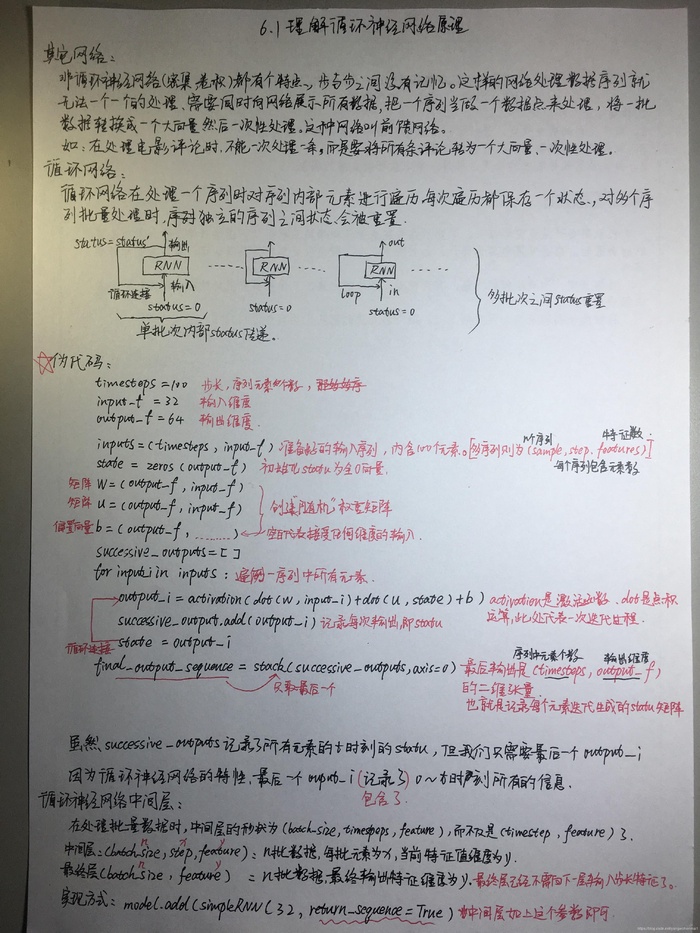 6.1 理解循环神经网络原理
其它网络：
非循环神经网络(密集 卷积)都有个特点、步与步之间没有记忆。这样的网络处理数据序列就
无法一个一个的处理、需要同时向网络展示所有数据，把一个序列当做一个数据点来处理，将一批
数据转换成一个大向量然后一次性处理。这种网络叫前馈网络。
如：在处理电影评论时，不能一次处理一条，而是要将所有条评论转为一个大向量、一次性处理。
循环网络：
循环网络在处理一个序列时对序列内部元素进行遍历，每次遍历都保存一个状态、，对多个序
列批量处理时，序列独立的序列之间状态会被重置.
status=status' 输出 out
RNN ------ RNN ---- RNN ------
循环连接 输入 loop in 多批次之间status重置
status=0 status=0 status=0
单批次内部status传递。
☆伪代码：
timesteps =100 步长，序列元素个数，
input_f = 32 输入维度
output_f = 64 输出维度.
n个序列 特征数.
inputs=(timesteps, input_f) 准备好的输入序列，内含100个元素。[多序列则为(sample,step.features)]
state = zeros (output_f) 初始化statu为全0向量. 每个序列包含元素数
矩阵 W=(output_f, input_f)
矩阵 U=(output_f, input_f) 创建"随机"权重矩阵
偏置向量 b=(output_f, ........) 空的代表接受任何维度的输入.
successive_outputs=[ ]
for input_i in inputs : 遍历一序列中所有元素.
output_i = activation(dot(w, input_i)+dot(u, state)+b) activation是激活函数. dot是点积
successive_output.add(output_i) 记录每次输出,即statu 运算,此处代表一次迭代过程.
循环连接 state = output_i
序列中元素个数 输出维度
final_output_sequence = stack(successive_outputs,axis=0) 最后输出是(timesteps, output_f)
只要最后一个 的二维张量.
也就是记录每个元素迭代生成的statu矩阵
虽然 successive_outputs 记录了所有元素的t时刻的statu，但我们只需要最后一个 output_i
因为循环神经网络的特性、最后一个 ouput_i (记录了) 0~t时刻所有的信息.
包含了.
循环神经网络中间层：
在处理批量数据时,中间层的形状为(batch-size, timestpeps, feature), 而不仅是(timestep, feature)了.
n x y
中间层:(batch_size, step, feature): n批数据,每批元素为x,当前特征值维度为y.
n y
最终层(batch_size, feature) = n批数据,最终输出特征维度为y. 最终层已经不需向下一层输入步长特征了。
实现方式：model.add(simpleRNN(32, return_sequence=True) 中间层加上这个参数即可.